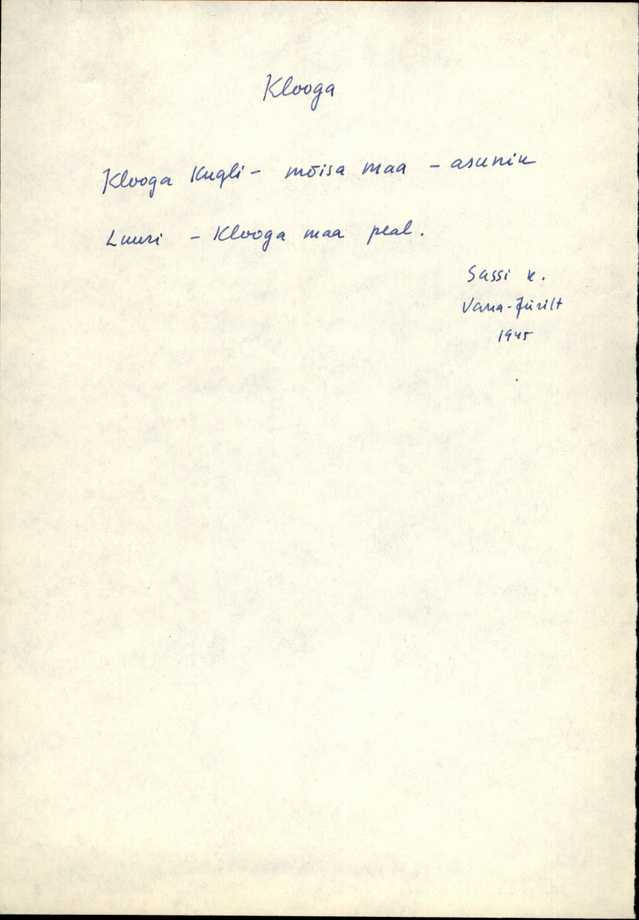 Klooga
Klooga Kugli - mõisa maa - asunik
Luuri - Klooga maa peal.
Sassi k.
Vana-Jürilt
1945